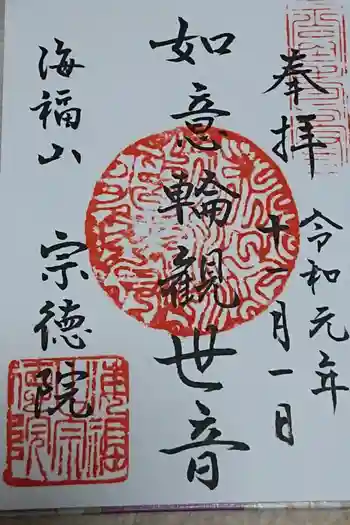 奉拝
令和元年
十一月一日
如意輪観世音
海福山 宗徳院